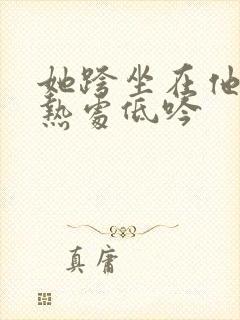 她跨坐在他
熱處低吟
真庸